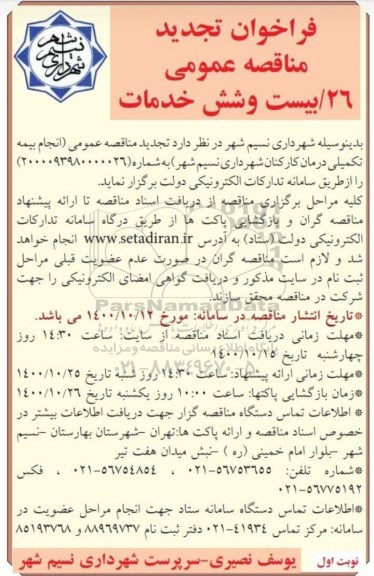 فراخوان تجدید
مناقصه عمومی
۲۶/بیست وشش خدمات
شهرداری نسیم شهر
بدینوسیله شهرداری نسیم شهر در نظر دارد تجدید مناقصه عمومی (انجام بیمه
تکمیلی درمان کارکنان شهرداری نسیم شهر) به شماره (۲۰۰۰۰۹۳۹۸۰۰۰۰۰۲۶)
را ازطریق سامانه تدارکات الکترونیکی دولت برگزار نماید.
کلیه مراحل برگزاری مناقصه از دریافت اسناد مناقصه تا ارائه پیشنهاد
مناقصه گران و بازگشایی پاکت ها از طریق درگاه سامانه تدارکات
الکترونیکی دولت (ستاد) به آدرس www.setadiran.ir انجام خواهد
شد و لازم است مناقصه گران در صورت عدم عضویت قبلی مراحل
ثبت نام در سایت مذکور و دریافت گواهی امضای الکترونیکی را جهت
شرکت در مناقصه محقق سازند.
*تاریخ انتشار مناقصه در سامانه: مورخ ۱۴۰۰/۱۰/۱۲ می باشد.
*مهلت زمانی دریافت اسناد مناقصه از سایت: ساعت ۱۴:۳۰ روز
چهارشنبه تاریخ ۱۴۰۰/۱۰/۱۵
*مهلت زمانی ارائه پیشنهاد: ساعت ۱۴:۳۰ روز شنبه تاریخ ۱۴۰۰/۱۰/۲۵
*زمان بازگشایی پاکتها: ساعت ۱۰:۰۰ روز یکشنبه تاریخ ۱۴۰۰/۱۰/۲۶
* اطلاعات تماس دستگاه مناقصه گزار جهت دریافت اطلاعات بیشتر در
خصوص اسناد مناقصه و ارائه پاکت ها:تهران -شهرستان بهارستان -نسیم
شهر -بلوار امام خمینی (ره) -نبش میدان هفت تیر
*شماره تلفن: ۵۶۷۵۳۶۵۵-۰۲۱ ، ۵۶۷۵۴۸۵۴-۰۲۱ ، فکس
۵۶۷۷۵۱۹۲-۰۲۱
*اطلاعات تماس دستگاه سامانه ستاد جهت انجام مراحل عضویت در
سامانه: مرکز تماس ۴۱۹۳۴-۰۲۱ دفتر ثبت نام ۸۸۹۶۹۷۳۷ و ۸۵۱۹۳۷۶۸
نوبت اول
یوسف نصیری-سرپرست شهرداری نسیم شهر
ParsNamadData
پایگاه اطلاع رسانی مناقصه و مزایده
۰۲۱-۸۸۳۴۹۶۷۰